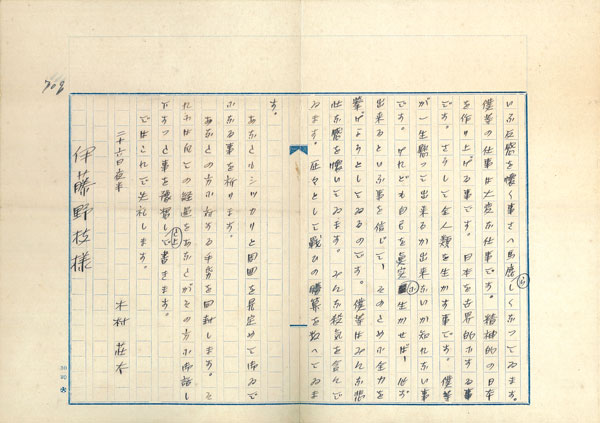 いふ反感を懐く事さへ馬鹿らしくなつてゐます。
僕等の仕事は大変な仕事です。精神的の日本
を作り上げる事です。日本を世界的にする事
です。さうして全人類を生かす事です。僕等
が一生懸つて出来るか出来ないか知れない事
です。けれども自己を真実に生かせば、必ず
出来るといふ事を信じて、そのために全力を
挙げようとしてゐるのです。僕等はみんな悲
壮な感を懐いてゐます。みんな殺気を
ゐます。 として戦ひの を へてゐま
す。
あなたもシツカリと周囲を見定めて
なる事を祈ります。
あなたの方に対する手紙を同封します。そ
れは 経過をあなたがその方に御話し
事を して書きます。
ではこれで失礼します。
二十六日夜半
木村 荘太
伊藤野枝様